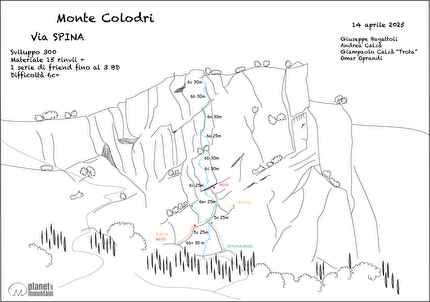 Monte Colodri
Via SPINA
Sviluppo 300
Materiale 15 rinvii +
1 serie di friend fino al 3 BD
Difficoltà 6c+
14 aprile 2025
Giuseppe Bagattoli
Andrea Calzà
Giampaolo Calzà "Trota"
Omar Oprandi
6c 30m
6b 30m
6a 25m
6b 30m
6c 30m
6c 25m
6b+ 25m
5c 25m
5c 25m
6b+ 30 m
planet
mountain